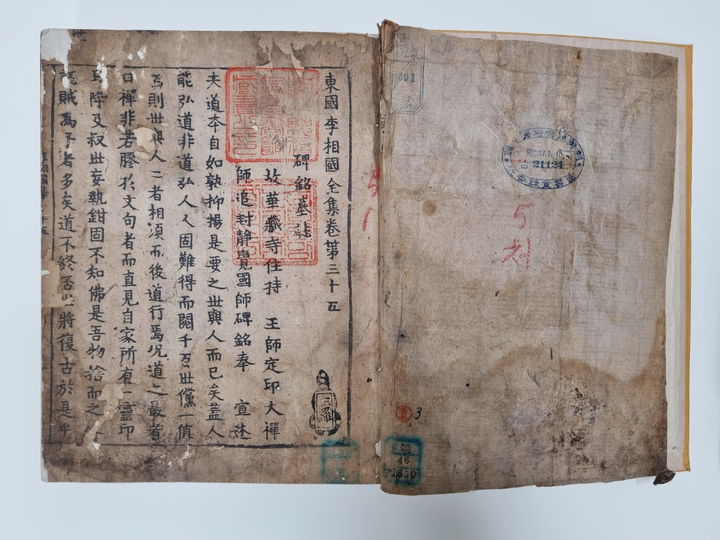 東國李相國全集卷第三十五
碑銘墓誌
故華藏寺住持 王師定印大禪
師追封靜覺國師碑銘奉 宣述
夫道本自如孰抑揚是要之世與人而已矣盖人
能弘道非道弘人人固難得而閱千百世儻一値
焉則世與人二者相須而後道行焉况道之最者
曰禪非若膠於文句者而直見自家所有一靈印
降及叔世妄執鉗固不知佛是吾物捨而之
賊爲子者多矣道不終否必將復古於是乎
21124
5
3
1850